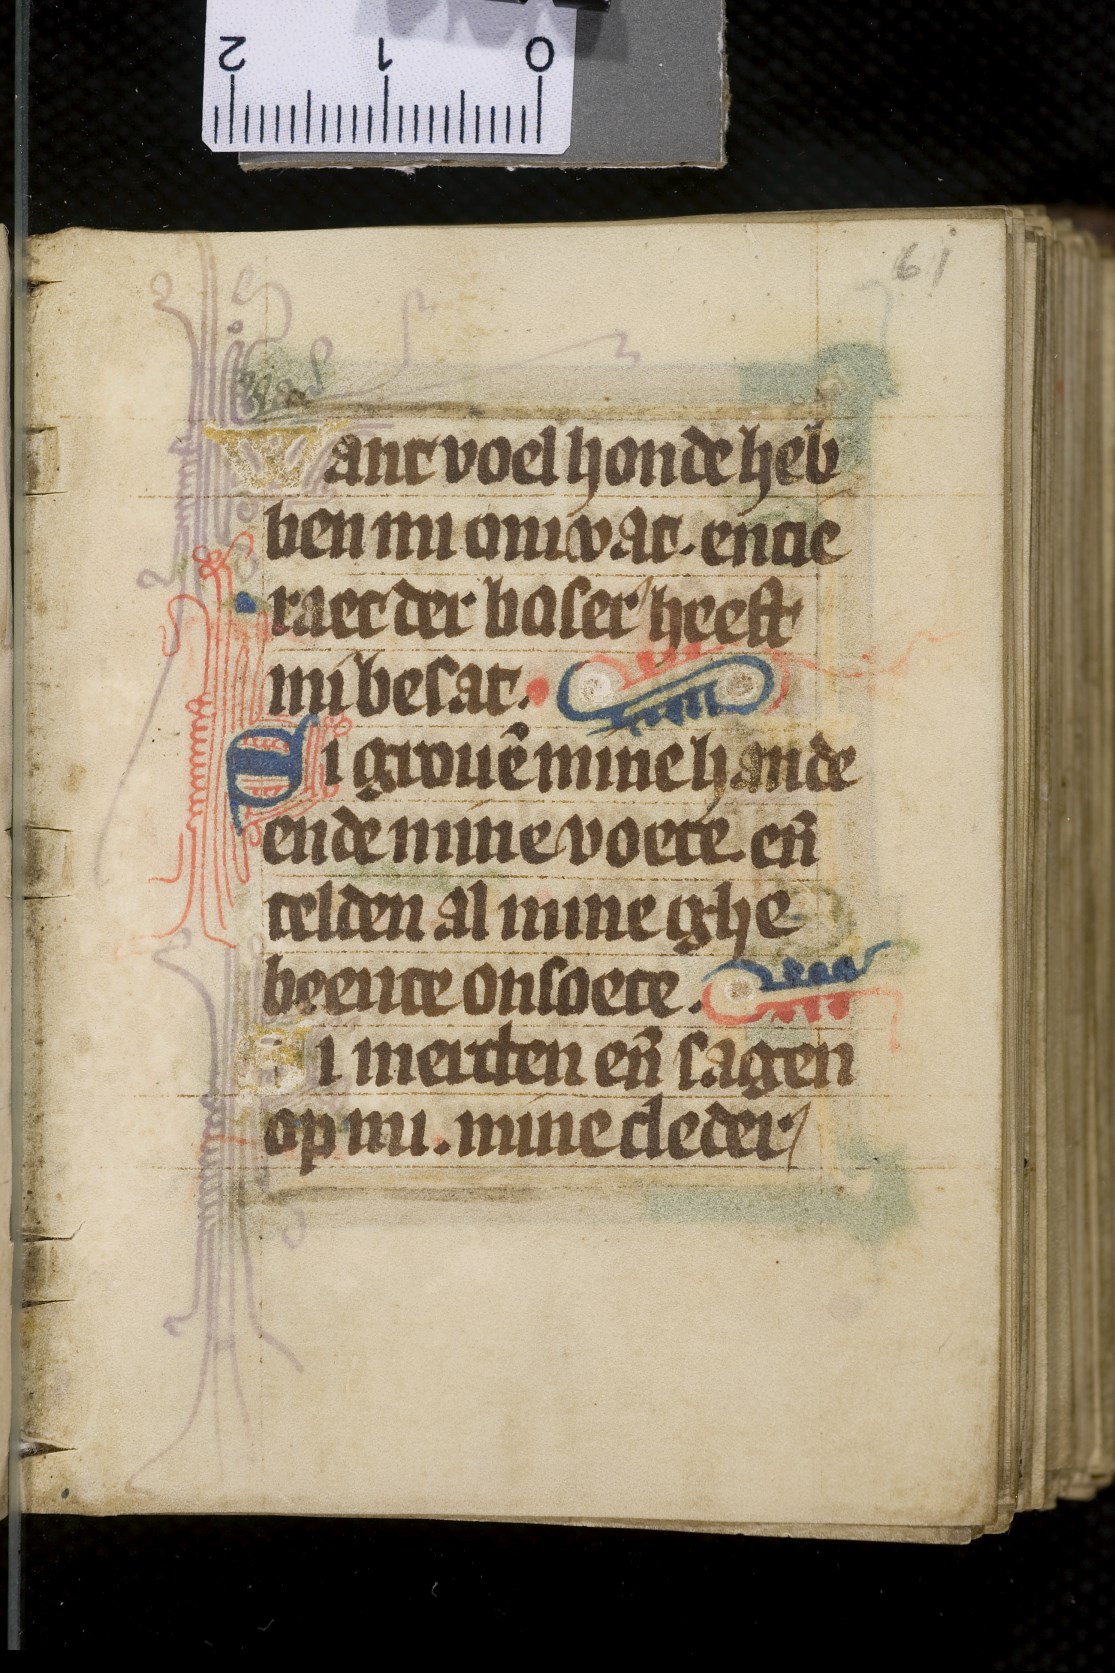 2 1 0
61
Want voel honde heb
ben mi omvat. entie
raet der boser heeft
mi besat.
Si grouē mine hande
ende mine voete. en̄
telden al mine ghe
beente onsoete.
Si mercten en̄ sagen
op mi. mine cleder/